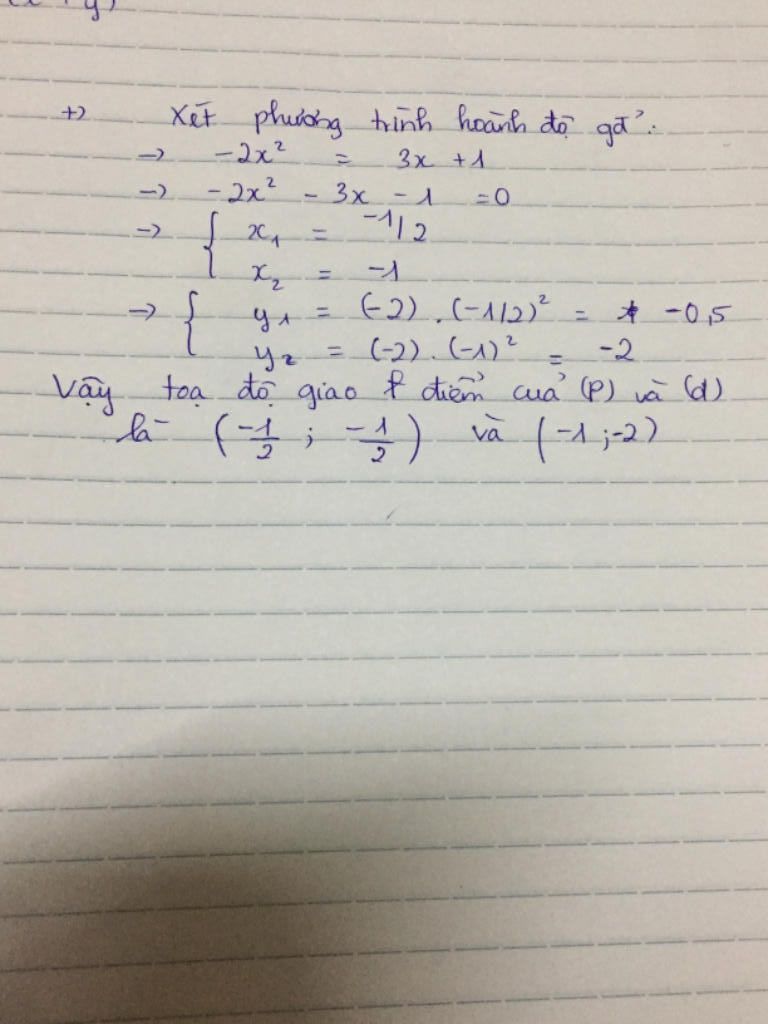 +) Xét phương trình hoành độ gđ:
→ -2x² = 3x + 1
→ -2x² - 3x - 1 = 0
→ { x₁ = -1/2
x₂ = -1
→ { y₁ = (-2) . (-1/2)² = -0,5
y₂ = (-2) . (-1)² = -2
Vậy toạ độ giao điểm của (P) và (d)
là (-1/2 ; -1/2) và (-1 ; -2)